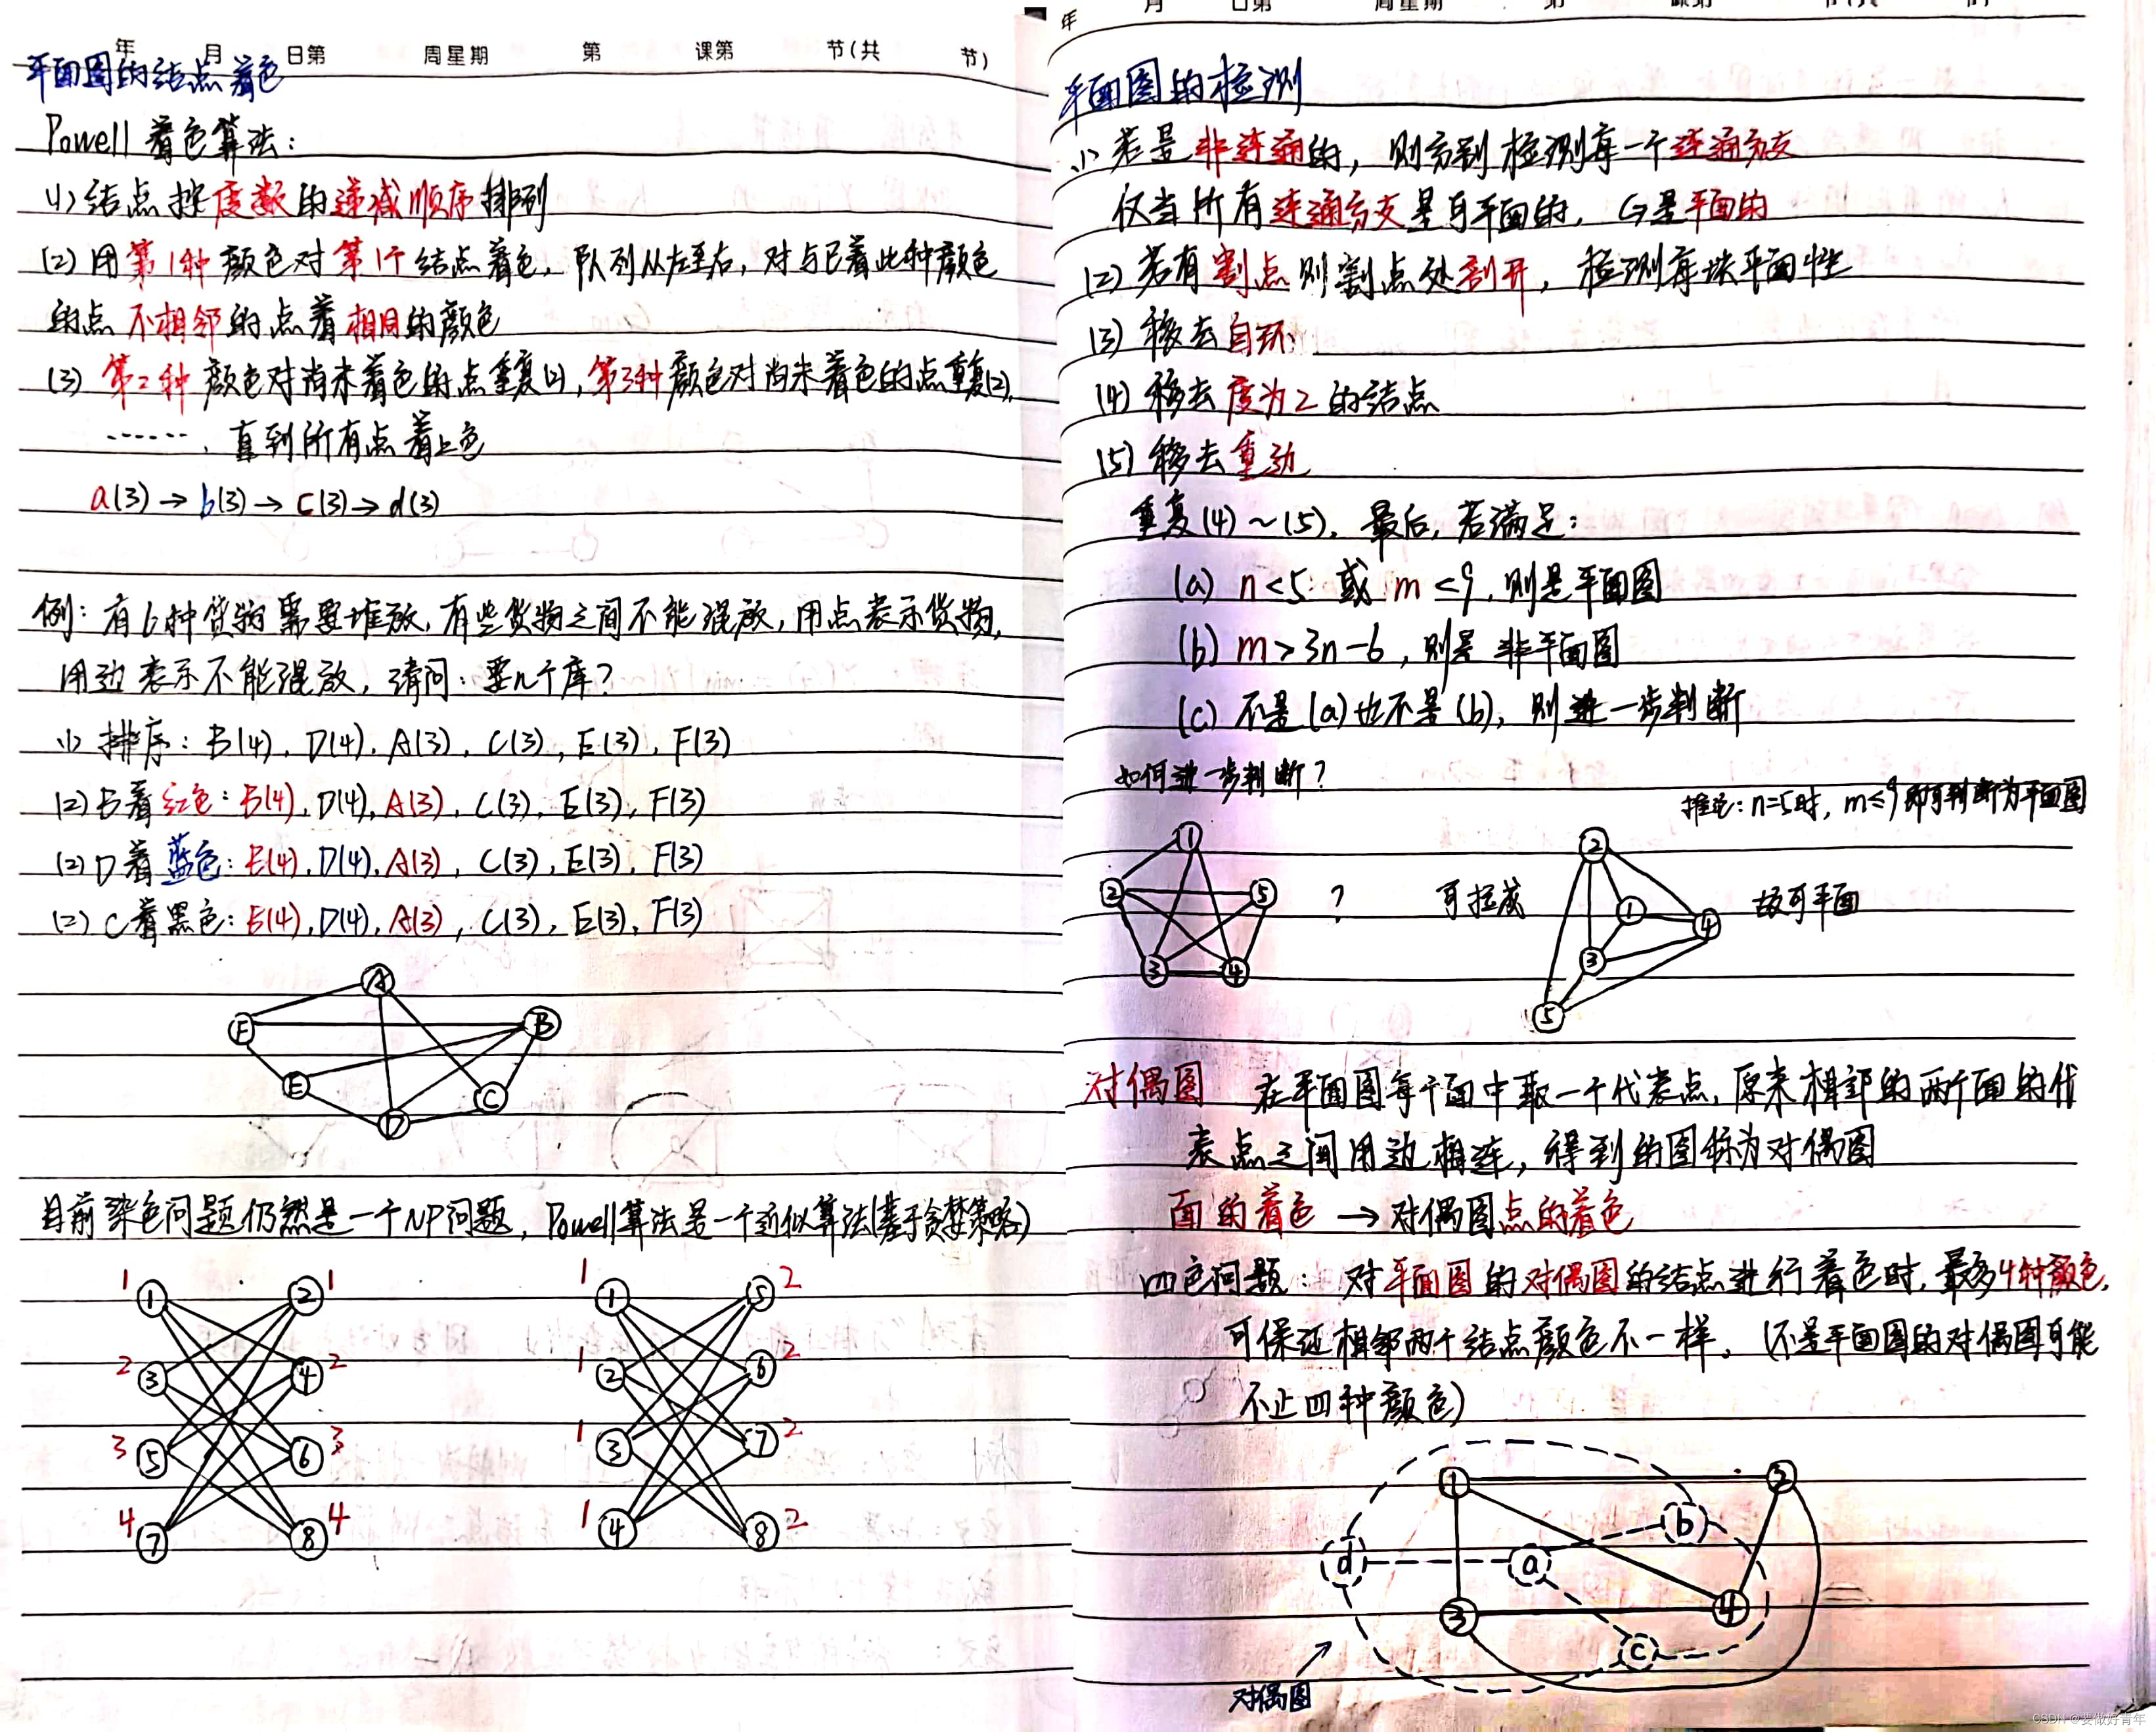 年 月 日第 周星期 第 课第 节(共 节)
平面图的结点着色
Powell 着色算法:
(1) 结点按度数的递减顺序排列
(2) 用第1种颜色对第1个结点着色, 队列从左至右, 对与已着此种颜色
的点不相邻的点着相同的颜色
(3) 第2种颜色对尚未着色的点重复(2), 第3种颜色对尚未着色的点重复(2),
......, 直到所有点着上色
a(3)→b(3)→c(3)→d(3)
例: 有6种货物需要堆放, 有些货物之间不能混放, 用点表示货物,
用边表示不能混放, 请问: 要几个库?
(1) 排序: B(4), D(4), A(3), C(3), E(3), F(3)
(2) B着红色: B(4), D(4), A(3), C(3), E(3), F(3)
(2) D着蓝色: B(4), D(4), A(3), C(3), E(3), F(3)
(2) C着黑色: B(4), D(4), A(3), C(3), E(3), F(3)
A
F B
E C
D
目前染色问题仍然是一个NP问题, Powell算法是一个近似算法(基于贪婪策略)
1 ① ② 1 1 ① ⑤ 2
2 ③ ④ 2 1 ② ⑥ 2
3 ⑤ ⑥ 3 1 ③ ⑦ 2
4 ⑦ ⑧ 4 1 ④ ⑧ 2
年 月 日第 周星期 第 课第 节(共 节)
平面图的检测
(1) 若是非连通的, 则分别检测每一个连通分支
仅当所有连通分支是可平面的, G是平面的
(2) 若有割点则割点处剖开, 检测每块平面性
(3) 移去自环
(4) 移去度为2的结点
(5) 移去重边
重复(4)~(5), 最后, 若满足:
(a) n<5 或 m≤9, 则是平面图
(b) m>3n-6, 则是非平面图
(c) 不是(a)也不是(b), 则进一步判断
如何进一步判断?
推论: n=5时, m≤9即可判断为平面图
① ②
② ⑤ ? 可拉成 ① ④ 故可平面
③ ④ ③
⑤
对偶图 在平面图每个面中取一个代表点, 原来相邻的两个面的代
表点之间用边相连, 得到的图称为对偶图
面的着色→对偶图点的着色
四色问题: 对平面图的对偶图的结点进行着色时, 最多4种颜色,
可保证相邻两个结点颜色不一样。(不是平面图的对偶图可能
不止四种颜色)
① ②
b
d a
③ ④
c
对偶图
CSDN @要做好青年